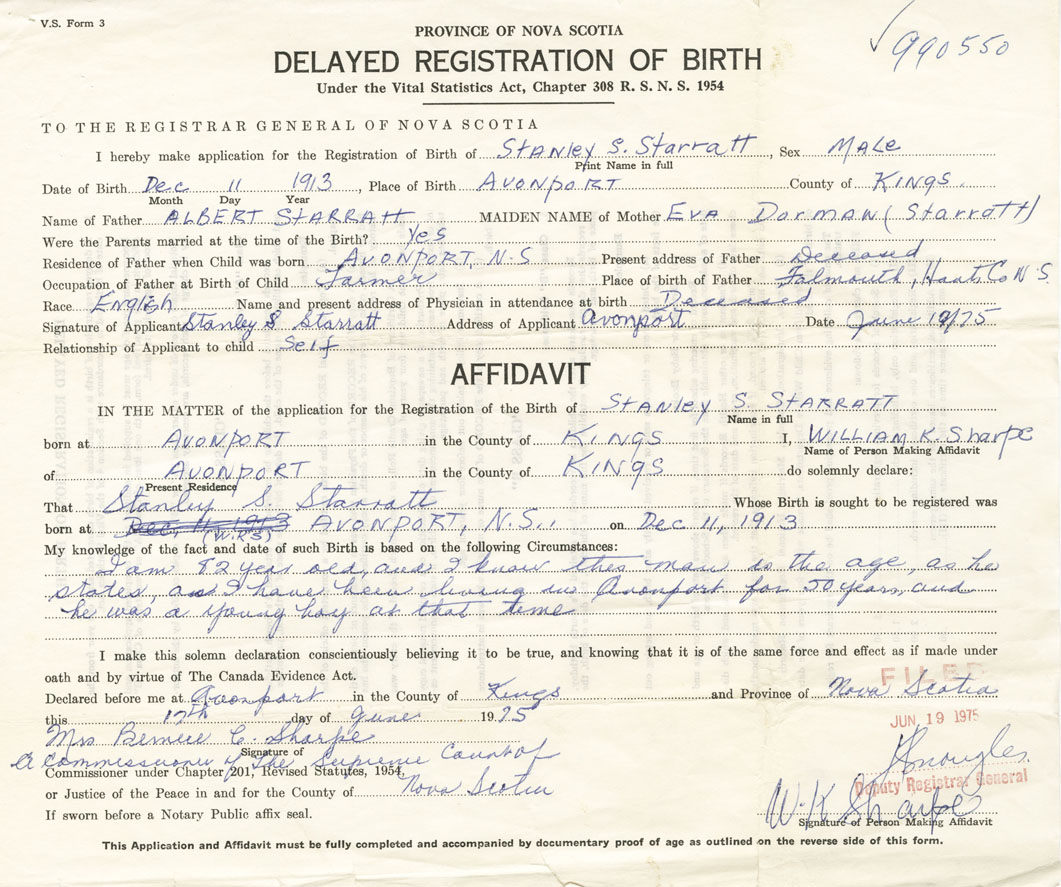 V.S. Form 3
PROVINCE OF NOVA SCOTIA
✓990550
DELAYED REGISTRATION OF BIRTH
Under the Vital Statistics Act, Chapter 308 R. S. N. S. 1954
TO THE REGISTRAR GENERAL OF NOVA SCOTIA
I hereby make application for the Registration of Birth of STANLEY S. Starratt, Sex MALE
Print Name in full
Date of Birth Dec 11 1913, Place of Birth AVONPORT County of KINGS.
Month Day Year
Name of Father ALBERT STARRATT MAIDEN NAME of Mother EVA DORMAN (Starratt)
Were the Parents married at the time of the Birth? Yes
Residence of Father when Child was born AVONPORT, N.S Present address of Father Deceased
Occupation of Father at Birth of Child Farmer Place of birth of Father Falmouth, Hants Co N S.
Race English Name and present address of Physician in attendance at birth Deceased
Signature of Applicant Stanley S Starratt Address of Applicant Avonport Date June 19/75
Relationship of Applicant to child Self
AFFIDAVIT
IN THE MATTER of the application for the Registration of the Birth of STANLEY S. STARRATT
Name in full
born at AVONPORT in the County of KINGS I, WILLIAM K. Sharpe
Name of Person Making Affidavit
of AVONPORT in the County of KINGS do solemnly declare:
Present Residence
That Stanley S. Starratt Whose Birth is sought to be registered was
born at Dec. 11, 1913 AVONPORT, N.S., on Dec 11, 1913
My knowledge of the fact and date of such Birth is based on the following Circumstances:
I am 82 year old, and I know this man is the age, as he
states, as I have been living in Avonport for 50 years, and
he was a young boy at that time
I make this solemn declaration conscientiously believing it to be true, and knowing that it is of the same force and effect as if made under
oath and by virtue of The Canada Evidence Act.
FILED
Declared before me at Avonport in the County of Kings and Province of Nova Scotia
this 17th day of June 1975
JUN 19 1975
Mrs Bernice C. Sharpe
Signature of
A Commissioner of the Supreme Court of
Commissioner under Chapter 201, Revised Statutes, 1954,
Deputy Registrar General
or Justice of the Peace in and for the County of Nova Scotia
W. K Sharpe
If sworn before a Notary Public affix seal.
Signature of Person Making Affidavit
This Application and Affidavit must be fully completed and accompanied by documentary proof of age as outlined on the reverse side of this form.